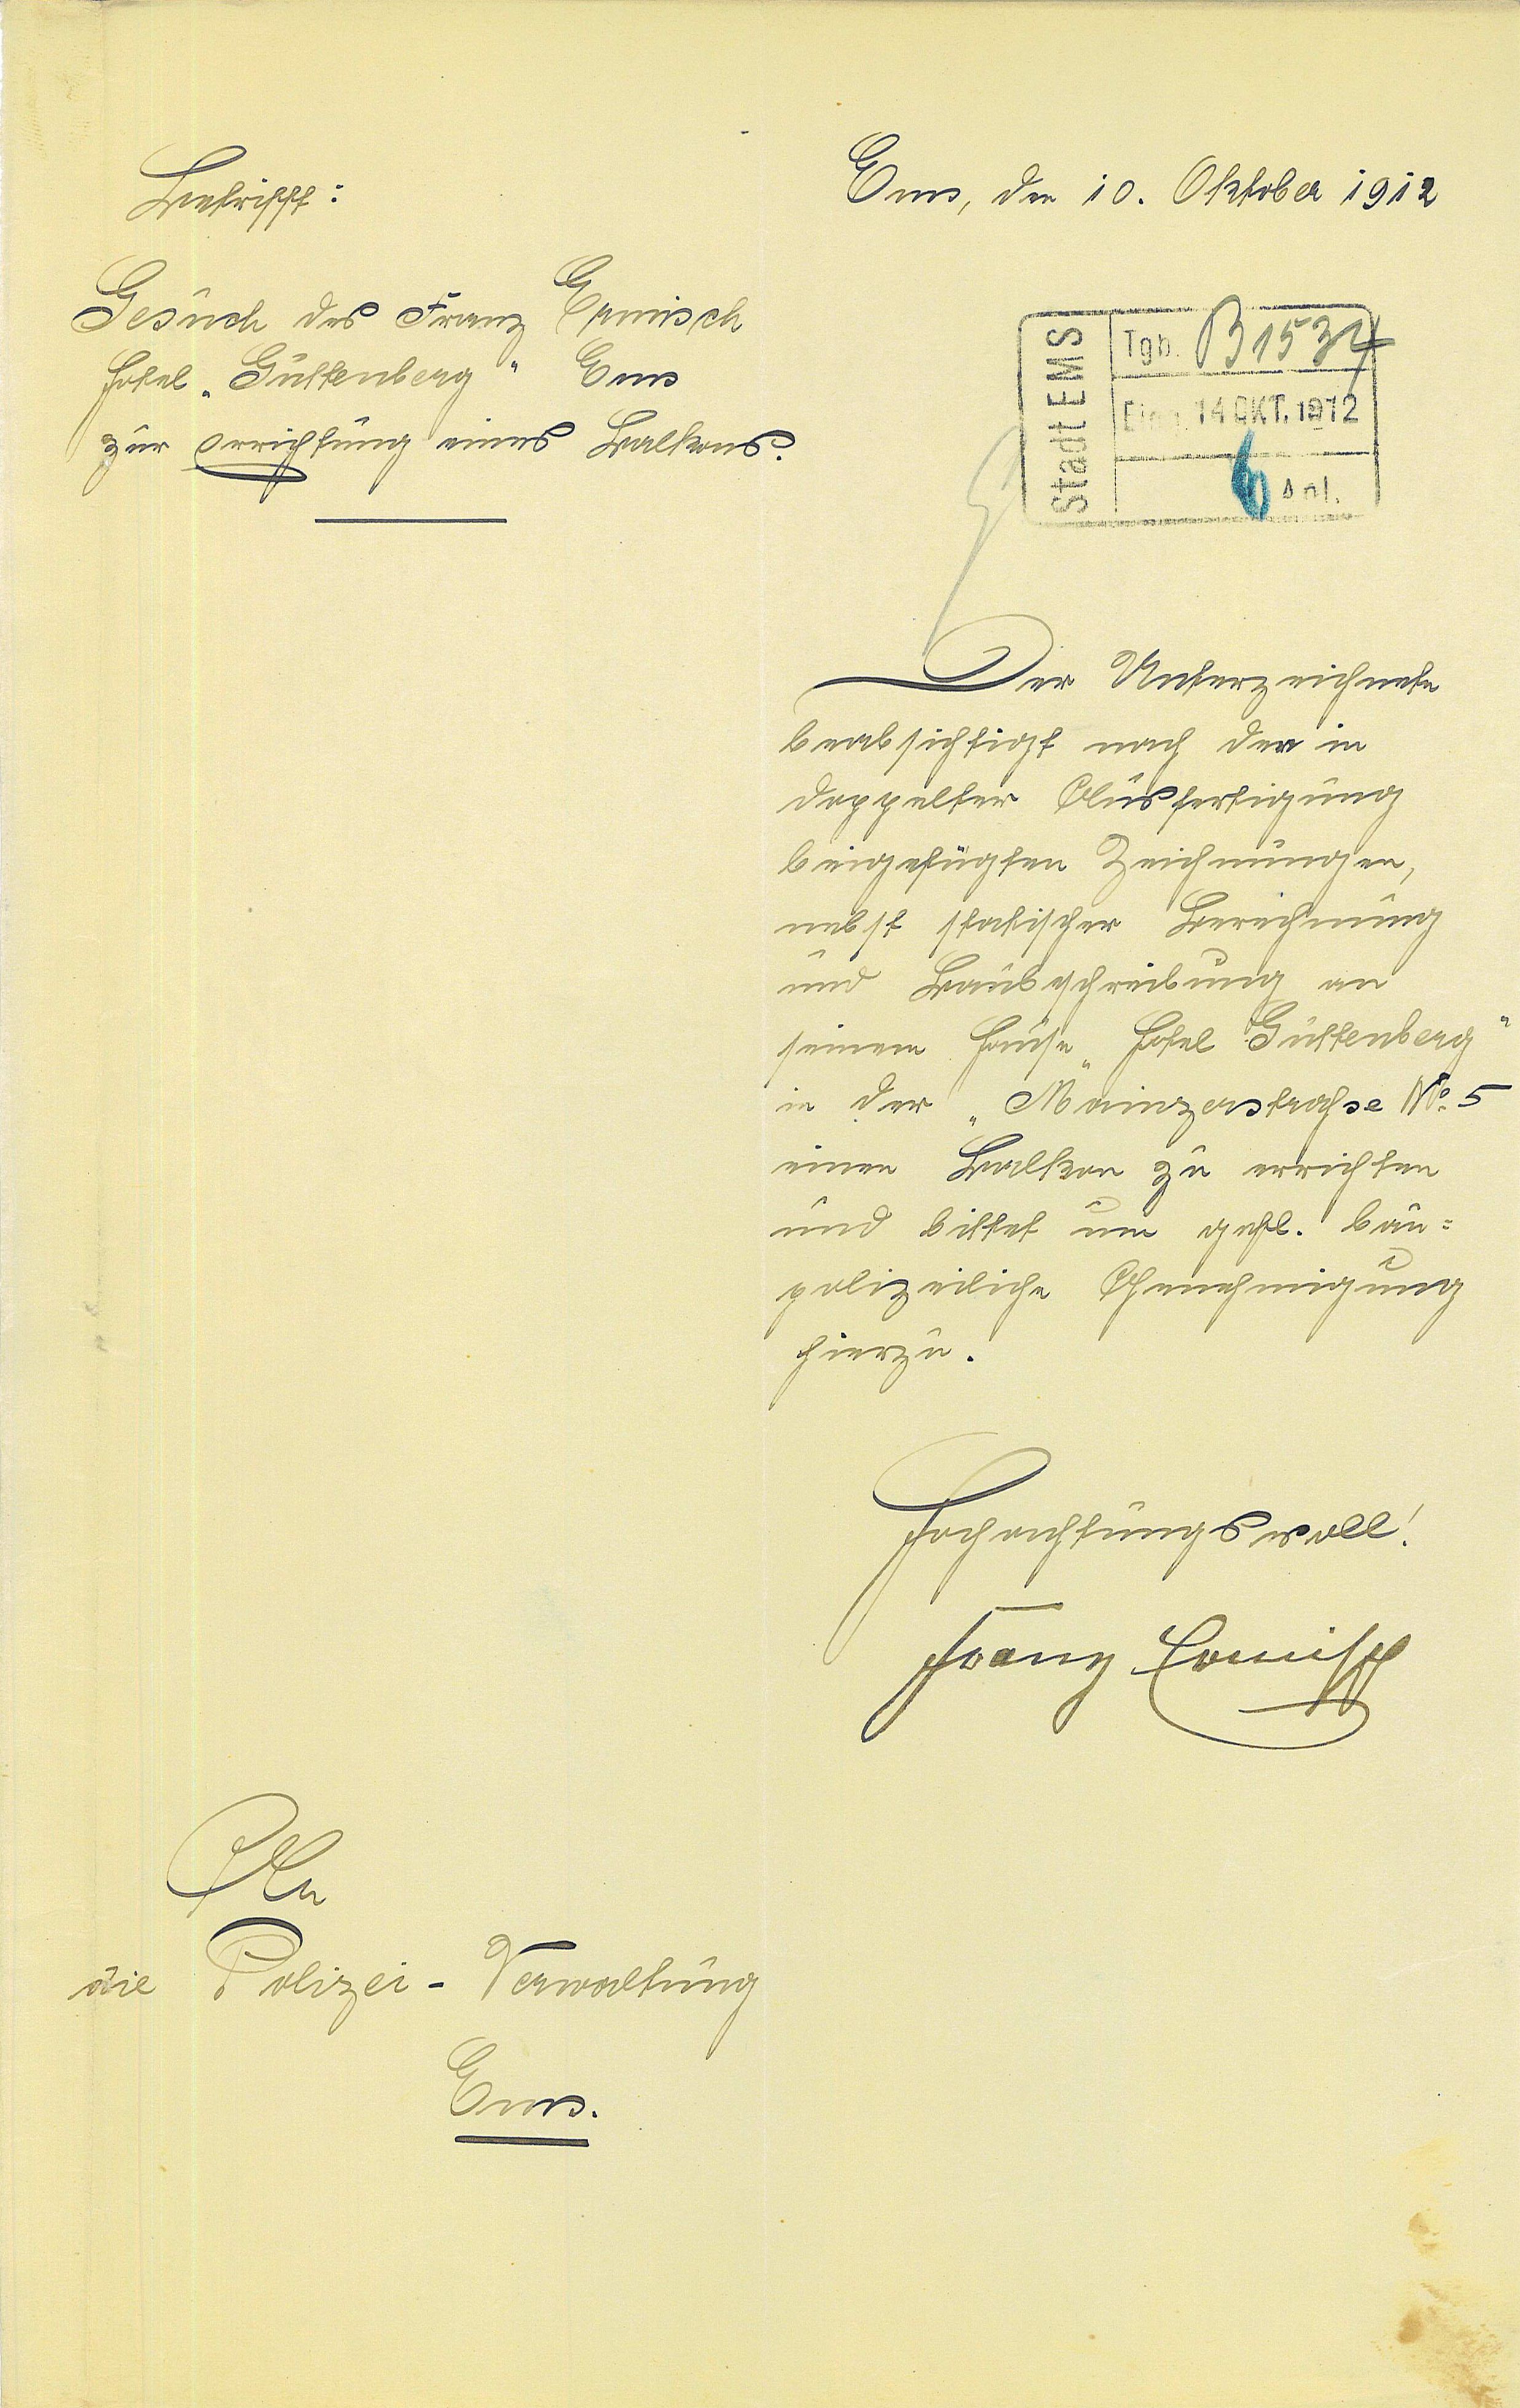 Betrifft:
Gesuch des Franz Ermisch
Hotel „Guttenberg" Ems
zur Errichtung eines Balkons.
Ems, den 10. Oktober 1912
Stadt EMS
Tgb. B 1534
Eing. 14 OKT. 1912
6 Anl.
Der Unterzeichnete
beabsichtigt nach den in
doppelter Ausfertigung
beigefügten Zeichnungen,
nebst statischer Berechnung
und Baubeschreibung an
seinem Hause „Hotel Guttenberg"
in der „Mainzerstraße No. 5
einen Balkon zu errichten
und bittet um gefl. bau=
polizeiliche Genehmigung
hierzu.
Hochachtungsvoll!
Franz Ermisch
An
die Polizei-Verwaltung
Ems.